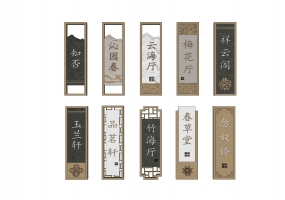 知否
沁园春
云海厅
梅花厅
祥云阁
玉兰轩
品茗轩
竹海厅
春草堂